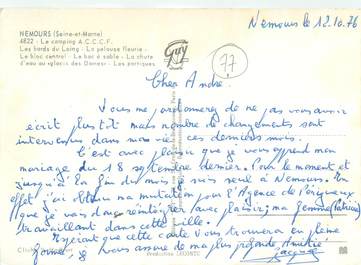 NEMOURS (Seine-et-Marne)
4822 - Le camping A.C.C.C.F.
Les bords du Loing - La pelouse fleurie -
Le bloc central - Le bac à sable - La chute
d'eau au «glacis des Dames» - Les portiques
Guy
77
Nemours le 12.10.76
Cher André.
Vous me pardonnerez de ne pas vous avoir
écrit plus tôt mais nombre de changements sont
intervenus dans ma vie ces derniers mois.
C'est avec plaisir que je vous apprend mon
mariage du 18 septembre dernier. Pour le moment et
jusqu'à la fin du mois je suis seul à Nemours. En
effet j'ai obtenu ma mutation pour l'Agence de Périgueux
que je vais donc réintégrer avec plaisir, ma femme (Patricia)
travaillant dans cette ville.
Espérant que cette carte vous trouvera en pleine
forme, je vous assure de ma plus profonde Amitié
Production LECONTE